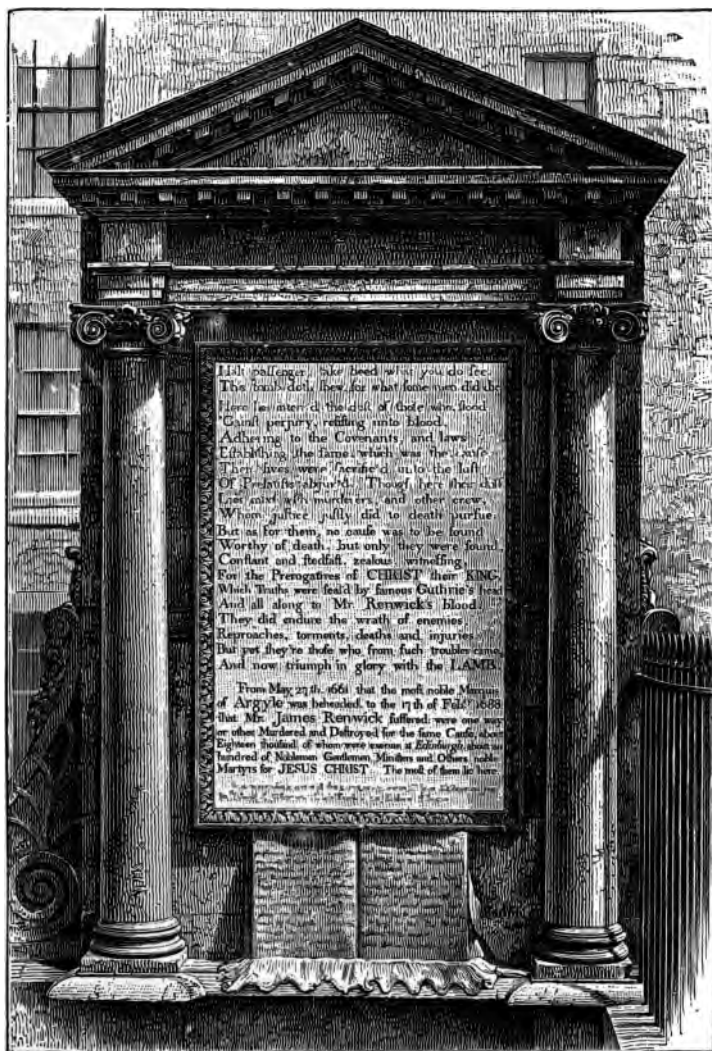 Halt passenger, take heed what you do see,
This tomb doth shew, for what some men did die.
Here lies interr'd the dust of those who stood
'Gainst perjury, resisting unto blood,
Adhering to the Covenants, and laws
Establishing the same, which was the cause
Their lives were sacrific'd unto the lust
Of Prelatists abjur'd. Though here their dust
Lies mixt with murderers, and other crew,
Whom justice justly did to death pursue.
But as for them, no cause was to be found
Worthy of death, but only they were found,
Constant and stedfast, zealous witnessing,
For the Prerogatives of CHRIST their KING.
Which Truths were seal'd by famous Guthrie's head
And all along to Mr. Renwick's blood.
They did endure the wrath of enemies
Reproaches, torments, deaths and injuries.
But yet they're those who from such troubles came,
And now triumph in glory with the LAMB.
From May 27th. 1661 that the most noble Marquis
of Argyle was beheaded, to the 17th of Febry. 1688
that Mr. James Renwick suffered were one way
or other Murdered and Destroyed for the same Cause, about
Eighteen thousand, of whom were execute at Edinburgh, about an
hundred of Noblemen Gentlemen, Ministers and Others, noble
Martyrs for JESUS CHRIST. The most of them lie here.